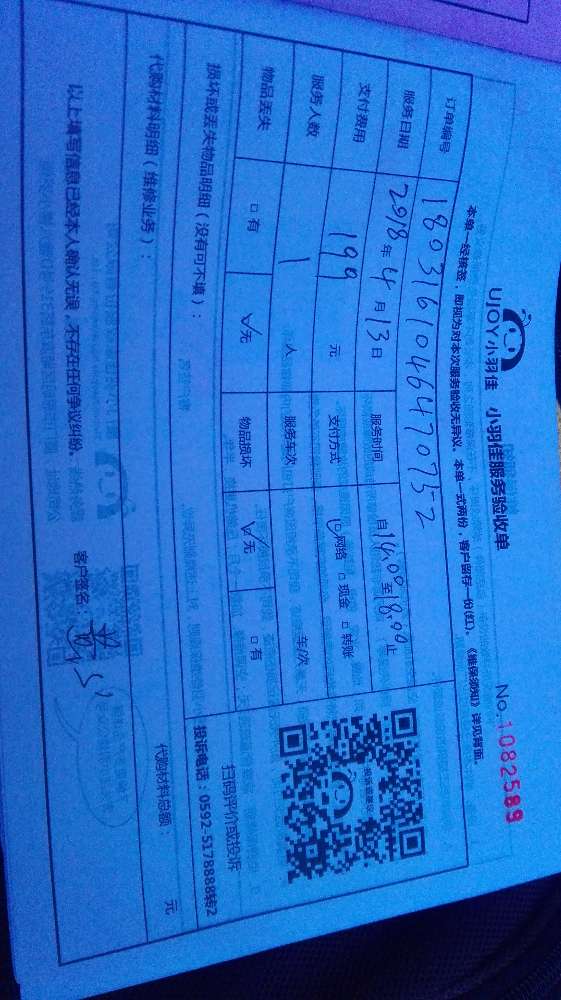 UJOY小羽佳 小羽佳服务验收单 No.1082589
本单一经接签，即视为对本次服务验收无异议。本单一式两份，客户留存一份(红)。《维保须知》详见背面。
订单编号 1803161046470752
服务日期 2018年4月13日 服务时间 自14:00至18:00止
支付费用 199 元 支付方式 ☑网络 □现金 □转账
服务人数 1 人 服务车次 车次
物品丢失 □有 ☑无 物品损坏 ☑无 □有
扫码评价或投诉
投诉电话：0592-5178888转2
损坏或丢失物品明细（没有可不填）：
代购材料明细（维修业务）： 代购材料总额： 元
以上填写信息已经本人确认无误，不存在任何争议纠纷。 客户签名：